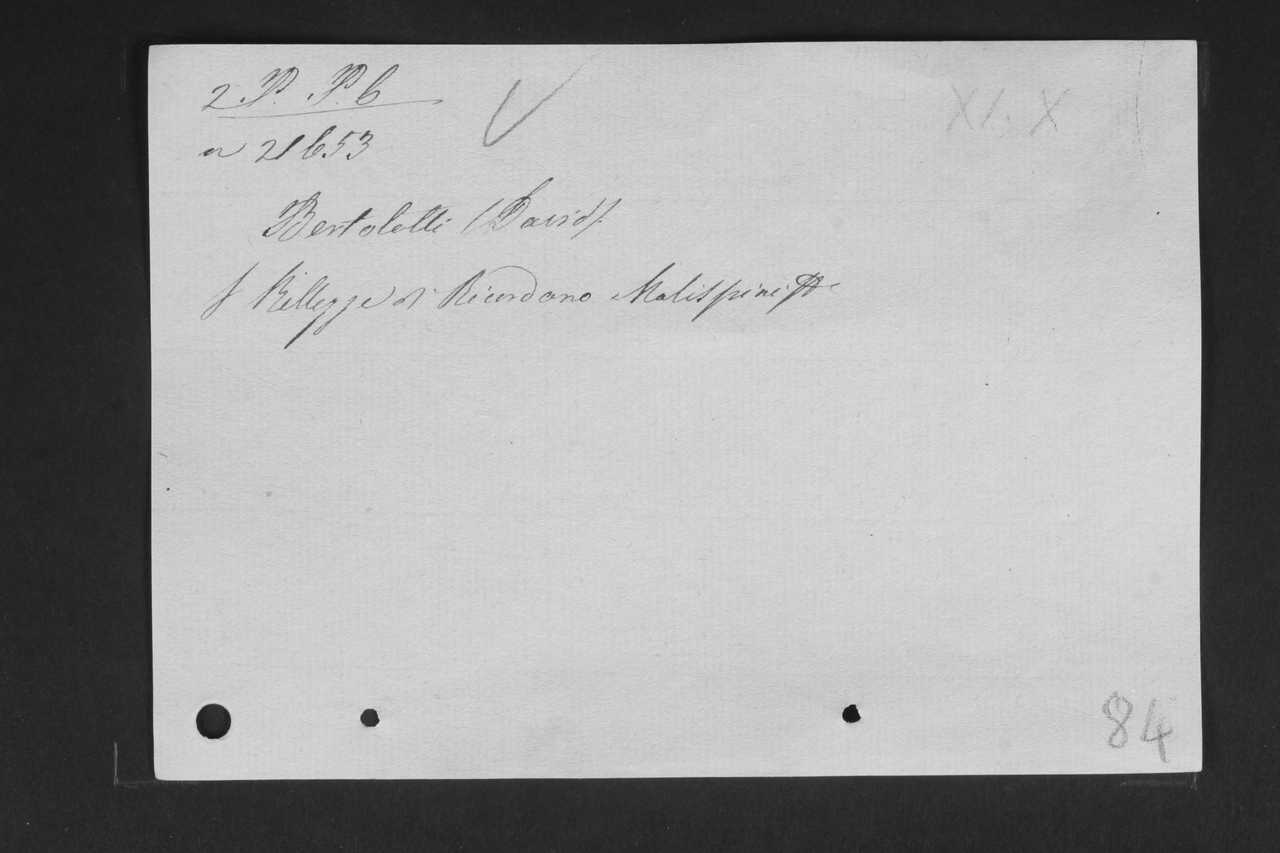 2. P. P. 6
XI. X
n 21653
Bertoletti (David).
f Rillegge di Ricordano Malispini
84